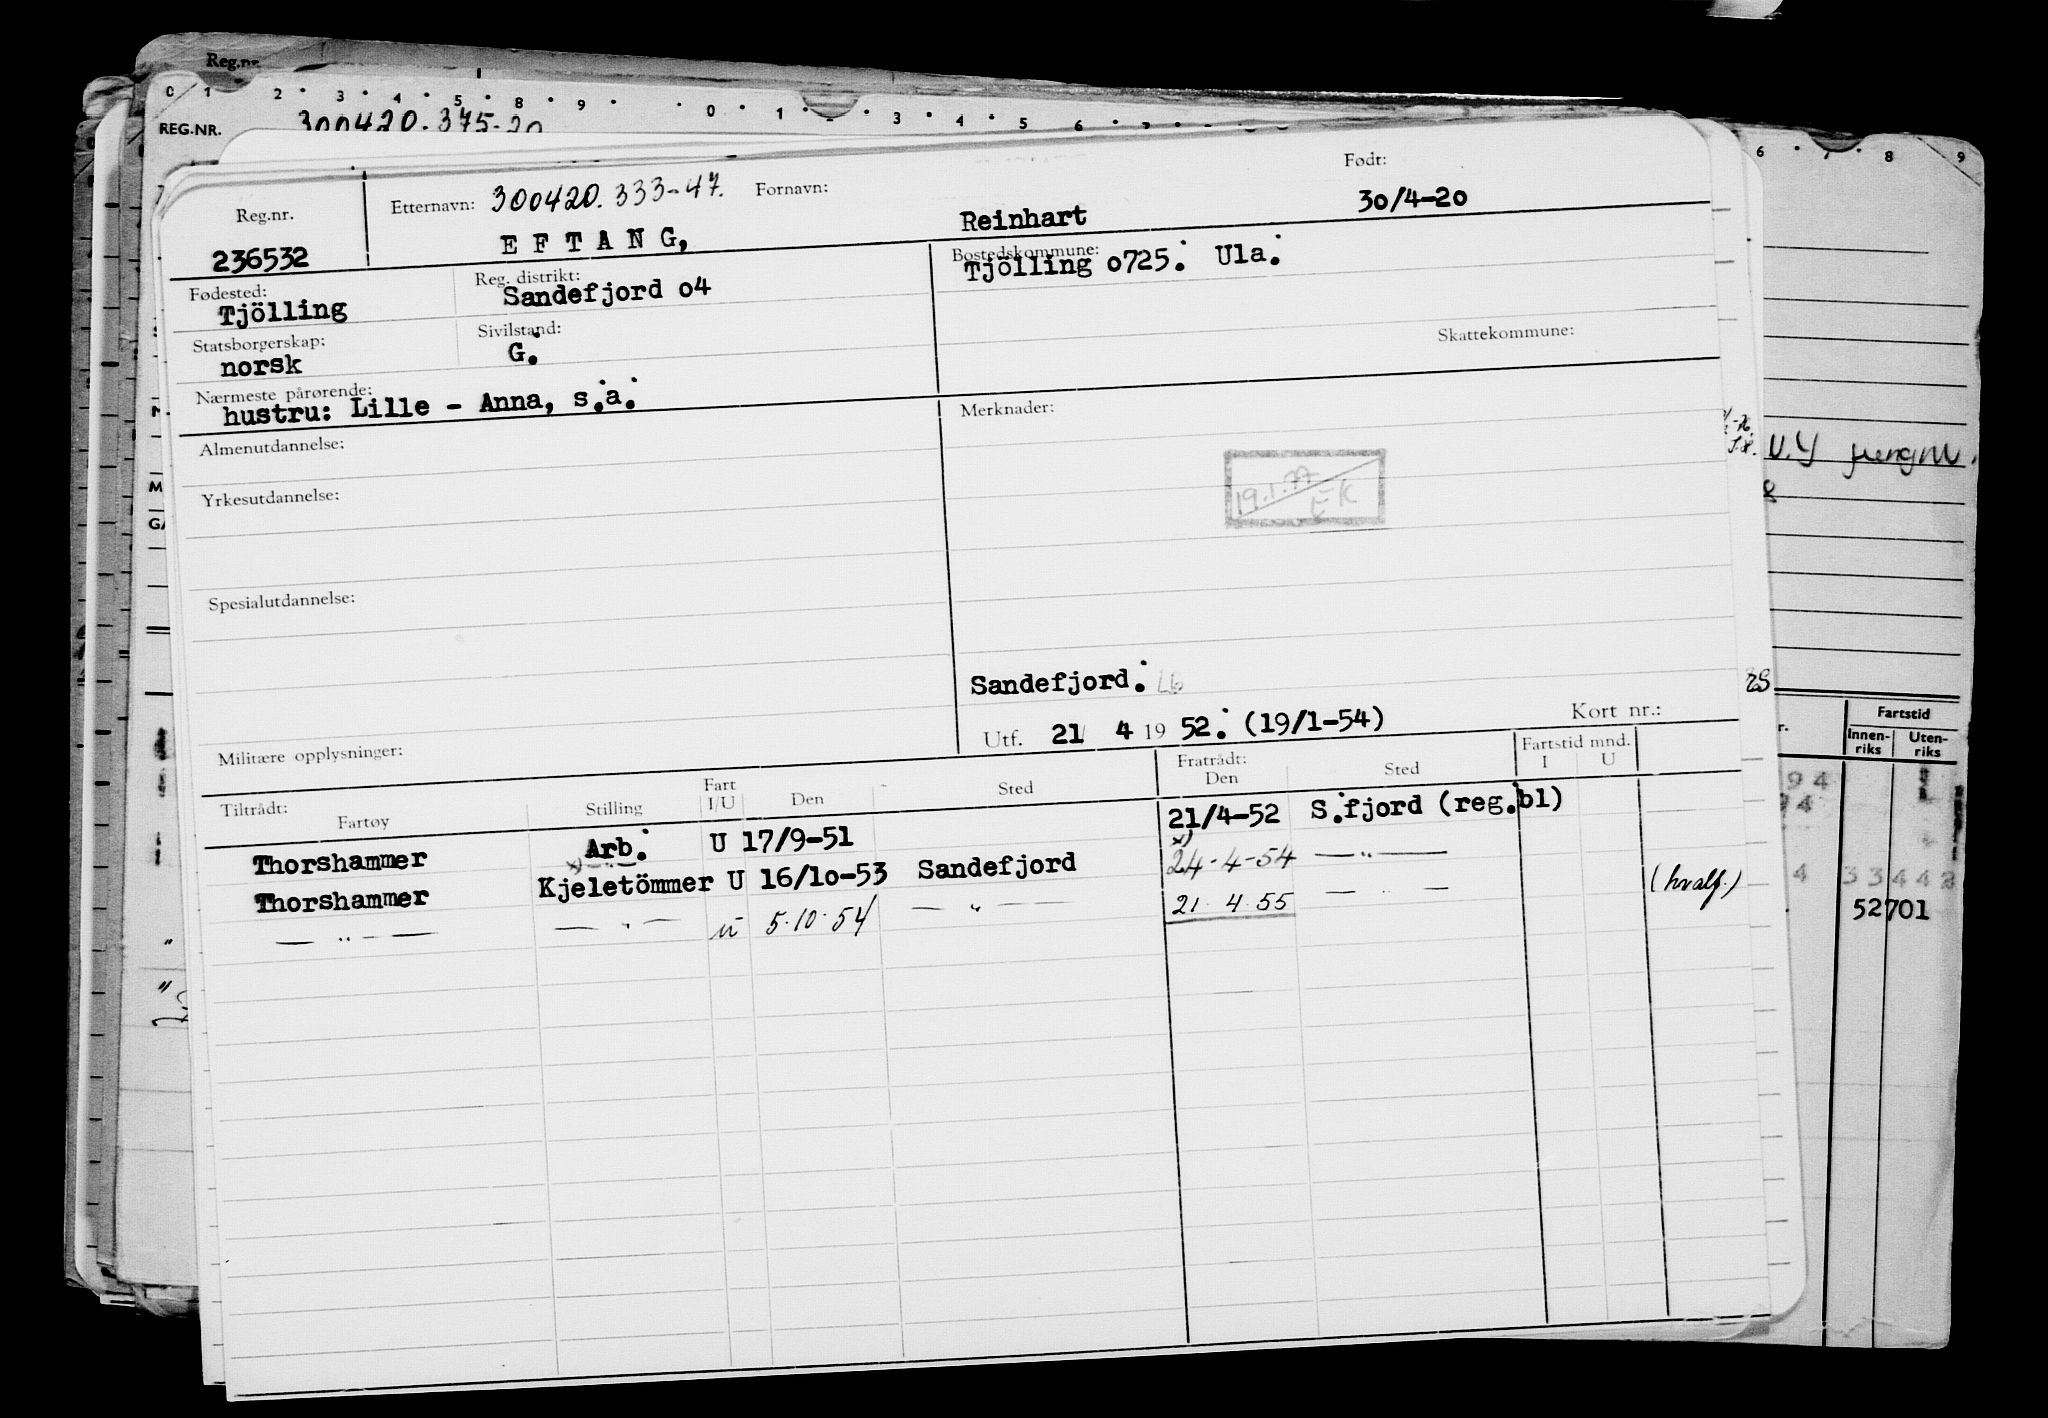 Reg.nr.
0 1 2 3 4 5 8 9 0 1 2 3 4 5 6 7
REG.NR. 300420.375-20
6 7 8 9
Reg.nr. Etternavn: 300420.333-47. Fornavn: Født:
236532 E F T A N G, Reinhart 30/4-20
Fødested: Reg. distrikt: Bostedskommune:
Tjölling Sandefjord o4 Tjölling o725. Ula.
Statsborgerskap: Sivilstand: Skattekommune:
norsk G.
Nærmeste pårørende:
hustru: Lille - Anna, s.a.
Merknader:
Almenutdannelse:
19.1.77 EK
Yrkesutdannelse:
Spesialutdannelse:
Sandefjord. Lb
Utf. 21 4 19 52. (19/1-54) Kort nr.:
Militære opplysninger:
Tiltrådt: Fratrådt: Fartstid mnd.
Fartøy Stilling Fart I/U Den Sted Den Sted I U
Thorshammer Arb. U 17/9-51 21/4-52 S.fjord (reg.bl)
Thorshammer x) Kjeletömmer U 16/1o-53 Sandefjord x) 24-4-54 — " —
— " — — " — u 5.10.54 — " — 21.4.55 — " — (hvalf.)
Fartstid
Innen-riks Uten-riks
94
4 33442
52701